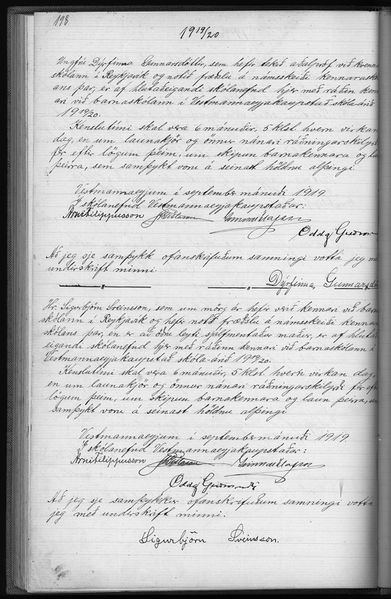 198
1919/20
Ungfrú Dýrfinna Gunnarsdóttir, sem hefir tekið aðalpróf við kvenna
skólann í Reykjavík og notið fræðslu á námsskeiði kennaraskól
ans þar, er af hlutaðeigandi skólanefnd hjer með ráðin kenn
ari við barnaskólann í Vestmannaeyjakaupstað skólaárið
1919/20.
Kenslutími skal vera 6 mánuðir, 5 klst hvern virkan
dag, en um launakjör og önnur nánari ráðningarskilyrði
fer eftir lögum þeim, um skipun barnakennara og laun
þeirra, sem samþykt voru á seinast höldnu alþingi.
Vestmannaeyjum í septembermánuði 1919
Í skólanefnd Vestmannaeyjakaupstaðar:
Árni Filippusson
Gunnar Ólafsson
Oddg Guðmun
Að jeg sje samþykk ofanskráðum samningi votta jeg með
undirskrift minni
Dýrfinna Gunnarsd
Hr. Sigurbjörn Sveinsson, sem um mörg ár hefir verið kennari við barna
skólann í Reykjavík og hefir notið fræðslu á námsskeiði kennara
skólans þar, en er að öðru leyti sjálfmentaður maður, er af hlutað
eigandi skólanefnd hjer með ráðinn kennari við barnaskólann í
Vestmannaeyjakaupstað skólaárið 1919/20.
Kenslutími skal vera 6 mánuðir, 5 klst hvern virkan dag,
en um launakjör og önnur nánari ráðningarskilyrði fer eftir
lögum þeim, um skipun barnakennara og laun þeirra, sem
samþykt voru á seinast höldnu alþingi.
Vestmannaeyjum í septembermánuði 1919
Í skólanefnd Vestmannaeyjakaupstaðar:
Árni Filippusson
Gunnar Ólafsson
Oddg Guðmundss
Að jeg sje samþykkur ofanskráðum samningi votta
jeg með undirskrift minni.
Sigurbjörn Sveinsson.